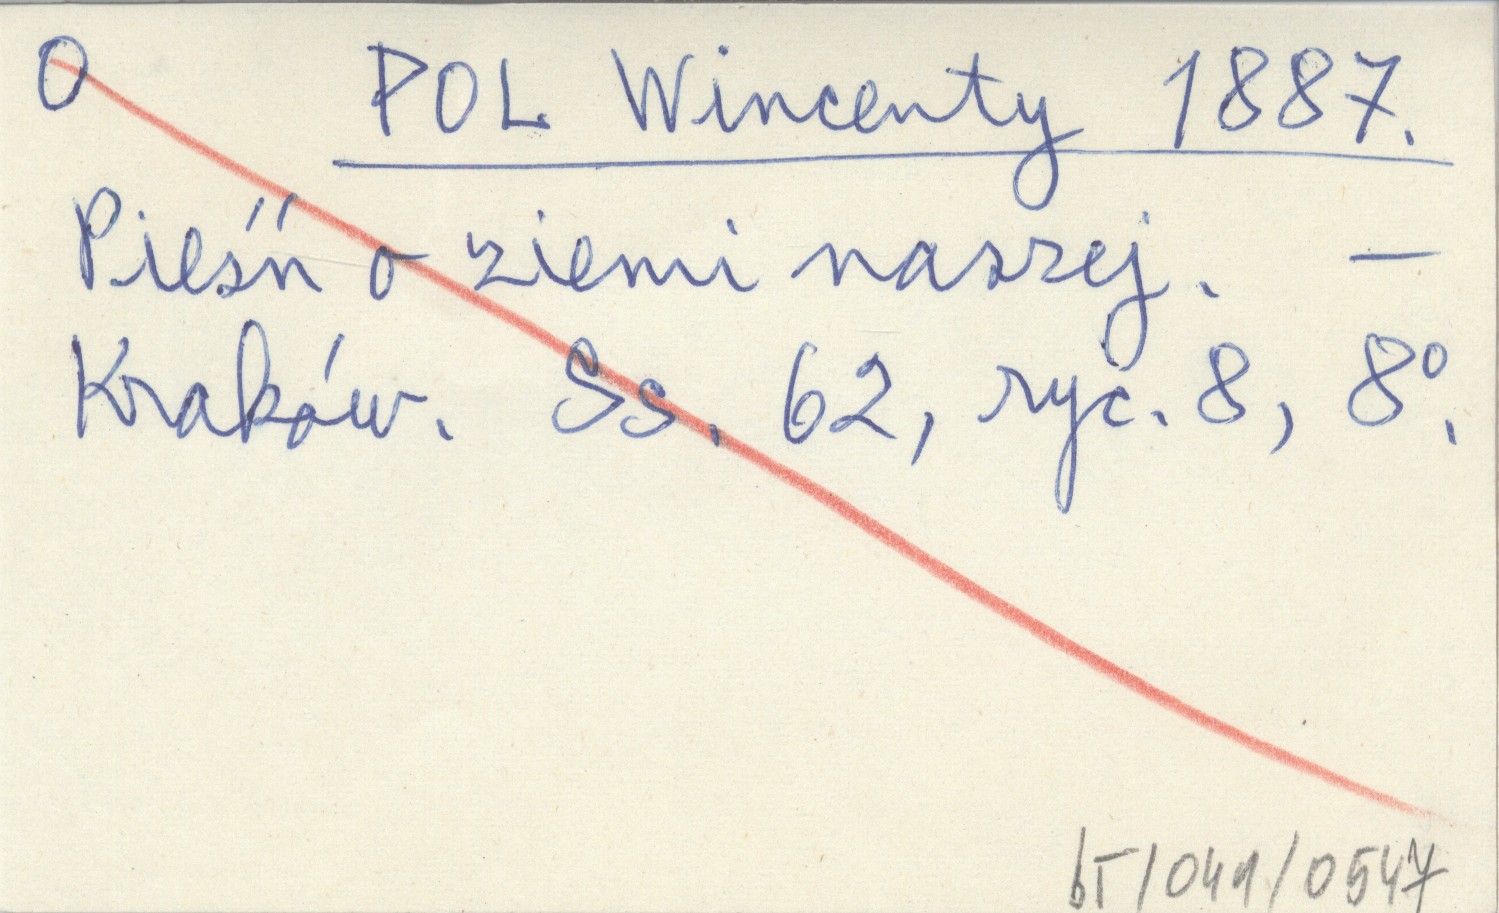 O POL Wincenty 1887.
Pieśń o ziemi naszej. —
Kraków. Ss. 62, ryc. 8, 8°.
bT/041/0547